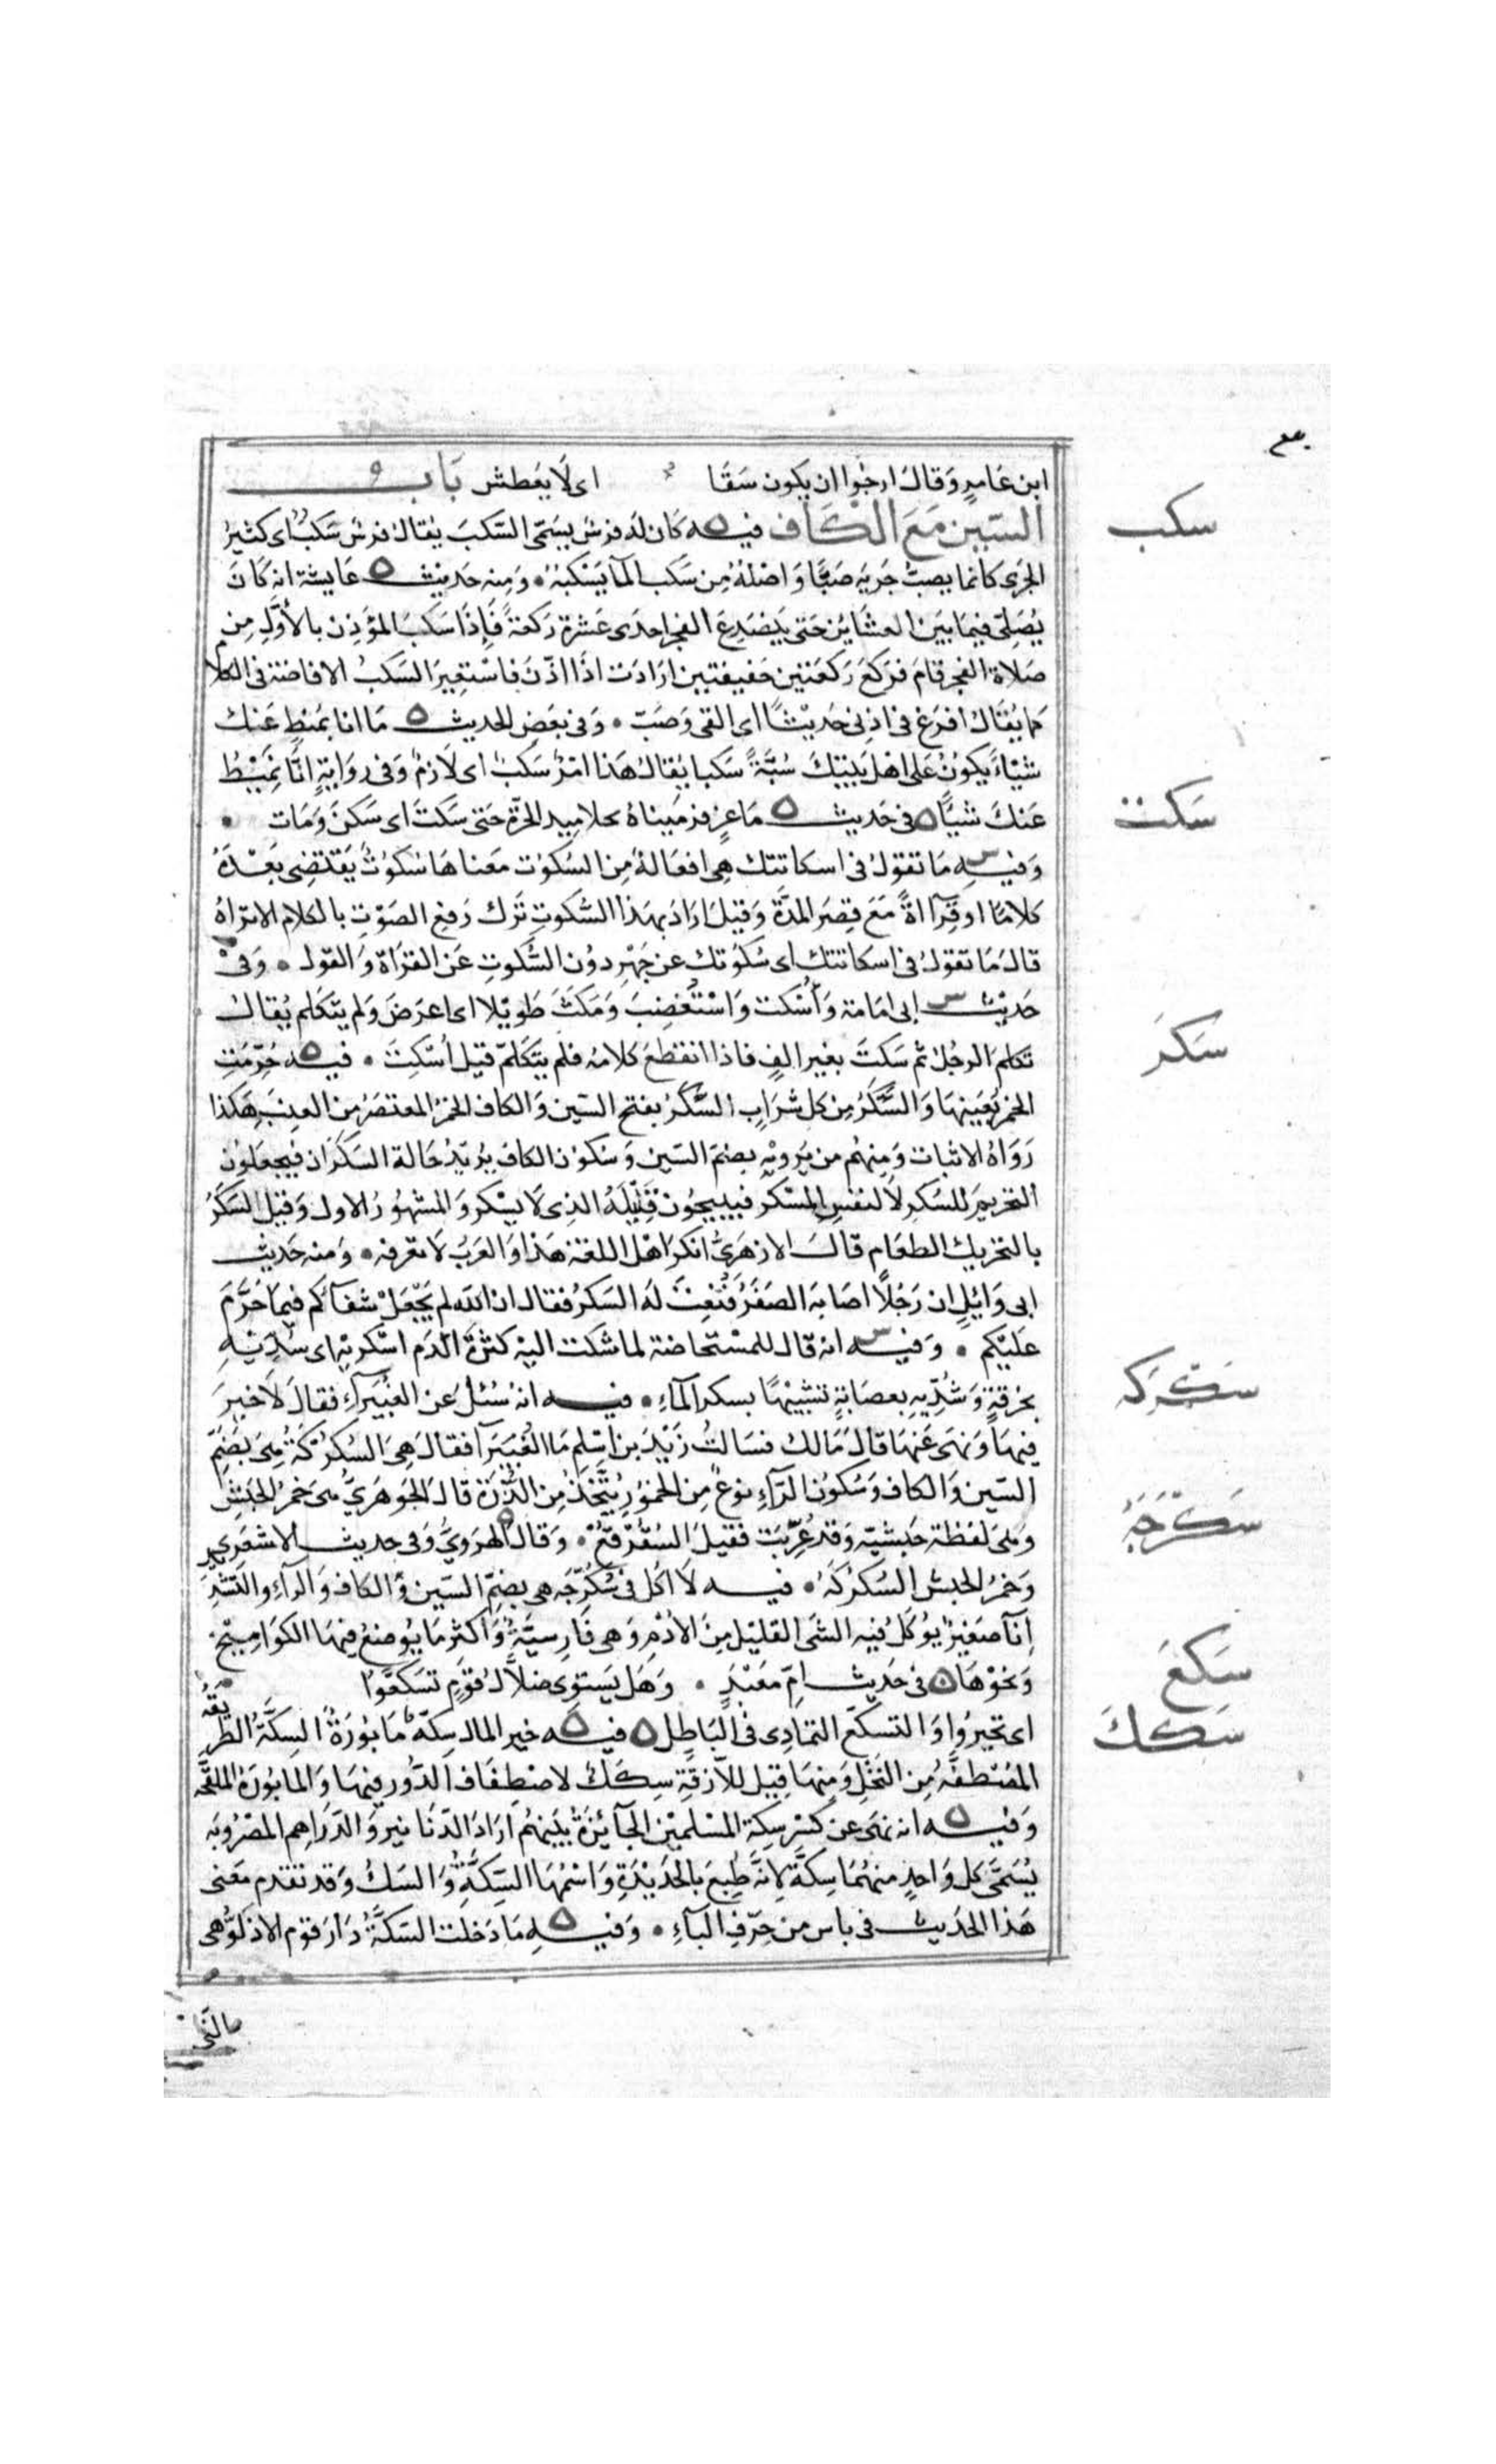 ابن عامرٍ وَقال ارجُوا ان يكون سَقًا اى لَا يَعطش بَاب
السّين مَعَ الكاف فيه ه كَان لَه فرسٌ يسَمّى السّكبَ يُقال فرسٌ سَكبٌ اى كثيرُ
سكب
الجرى كانما يصبّ جَريَه صَبًّا وَاصْلهُ مِن سَكب المآ يَسْكبُهُ • وَمِنه حَديث ه عَايشة انه كَانَ
يُصَلّى فيمَا بَيَن العشَايْن حَتى يَنصَدِعَ الفجرا حدى عَشرة رَكعَةً فَإذَا سَكبَ المؤذِن بالأوّلِ مِن
صَلاة الفجر قامَ فرَكعَ رَكعَتين خفيفتين ارَادَت اذَا اذّنَ فاسْتعِيرَ السّكبُ الافاضة فى الكلا
م
كما يُقَال افرَغ فى اذنى حَديْثًا اى القى وَصَبّ • وَفى بَعَضِ الحديث ه مَا انا بمُنطٍ عَنك
شيْاءً يَكونُ عَلى اهْل بَيتِكَ سُبَّةً سَكبا يُقالُ هَذا امْرٌ سَكبٌ اى لَازمٌ وَفى روَايَةٍ انّا نُمَيْطُ
عَنكَ شيْأً ه فى حَديث ه مَا عزٍ فرَمَيناهُ بجلاميد الحرّة حَتى سَكتَ اى سَكنَ وَمَات •
سَكت
وَفيهِ س مَا تقولُ فى اسكاتتِك هِى افعَالةٌ مِن السّكوُت مَعناهَا سُكوُتٌ يَقتَضِى بَعْدَهُ
كلامًا اوقِرَاةً مَعَ قِصَرِ المدَّة وَقيلَ ارَادَ بهذا السّكوتِ تَرْك رَفعِ الصَوْت بالكلام الا تراهُ
قالَ مَا تقولُ فى اسكاتتك اى سُكوُتك عن جَهْرٍ دوُن السُّكوتِ عَن القرَاة وَالقول • وَفى
حَديْث س ابى امَامة وَأُسْكت وَاسْتُغضِبَ وَمَكثَ طَويْلا اى اعرَضَ وَلم يتكَلم يُقال
تكلّمَ الرجُلُ ثم سَكتَ بغير الفٍ فاذا انقطعَ كلامُه فلم يتكَلّمْ قيل أُسْكِتَ • فيه ه حُرّمَتِ
سَكرَ
الخمرُ بعَينِهَا وَالسَّكَرُ مِن كل شرَابٍ السَّكَرُ بفتح السّين وَالكاف الخمرُ المعتصَرُ من العِنبِ هكَذا
رَوَاهُ الاثبات وَمِنهُم من يَرويْهِ بضمّ السّين وَسُكوُن الكاف يُريْدُ حَالة السّكرَان فيَجعَلوُن
التحريمَ للسُكرِ لا لنفسِ المسْكر فيبيحُون قَليْلَهُ الذى لَا يسْكر وَالمشهُورُ الاول وَقيل السَّكَرُ
بالتحريك الطعَام قالَ الازهَرىُّ انكرَ اهْل اللغة هَذا وَالعَربُ لا تعرفه • وَمنه حَديث
ابى وَايْلٍ ان رَجُلاً اصَابهَ الصَفَرُ فنُعِتَ لهَ السَكرُ فقال ان الله لم يَجْعَلْ شفآكم فيمَا حَرَّمَ
عَلَيْكم • وَفيه س انه قال للمسْتحَاضة لما شكت اليْه كثرَةَ الدَم اسْكريْهِ اى سُدّيْهِ
بخرْقةٍ وَشُدِّيهِ بعصَابَةٍ تشبيْهًا بسكر المآءِ • فيه انهُ سُئلَ عَن الغُبَيرآءِ فقالَ لاَ خيرَ
سُكركه
فيهَا وَنهى عَنهَا قالَ مَالك فسَالتُ زَيْدَ بن اسْلم مَا الغُبَيرآ فقالَ هِىَ السُكرْكةُ هىَ بضَمّ
السّين وَالكاف وَسُكوُن الرّآءِ نوعٌ مِن الخموُرِ يُتَّخَذُ مِن الذُّرَة قالَ الجَوهَرىُّ هىَ خمرُ الحَبَشِ
وَهىَ لفظة حَبَشيّة وَقد عُرِّبَت فقيلَ السُقُرْقعُ • وَقالَ الهرَوىُّ وَفى حديث الاشعَرى
وَخمرُ الحبش السُكرْكَهُ • فيه لاَ آكل فى سُكُرّجَه هى بضمّ السّين وَالكاف وَالرآءِ والتّشديد
سُكُرّجَهٌ
اِنآ صَغيرٌ يؤكَلُ فيهِ الشى القليْل مِنَ الاُدْمِ وَهى فارِسيّةٌ وَاكثر مَا يوُضعُ فيهَا الكوَامِيخُ
وَنحْوُهَا ه فى حَديث امّ مَعْبَدٍ • وَهَل يَستوى ضلاَّلُ قوَمٍ تسَكعَوُا
سَكعَ
اى تحيروُا وَالتسكعّ التمادى فى البَاطِل ه فيه ه خير المال سِكّة مَا بوُرَةٌ السِكَّةُ الطريقَةُ
سَكك
المُصْطفَّةُ مِن النّخَل وَمِنهَا قِيل للاَزقةِ سِكَك لاصْطِفَاف الدُّور فيهَا وَالمابوُرَة الملَقّحة
وَفيه ه انه نهَى عن كسْرِ سِكة المسْلميْن الجآئِزَة بَيْنهُم ارَادَ الدّنَا نير وَ الدّرَاهِم المضرُوبَه
يُسَمَّى كل وَاحدٍ منهُمَا سِكَّةً لانّه طُبِعَ بالحَديْدَةِ وَاسْمُهَا السِّكَّةُ وَالسّكُ وَقد تقدم مَعْنى
هَذا الحدَيث فى باس من حرْفِ البآءِ • وَفيهِ ه مَا دَخلت السّكَّةُ دَارَ قوم الا ذلوُّا هى